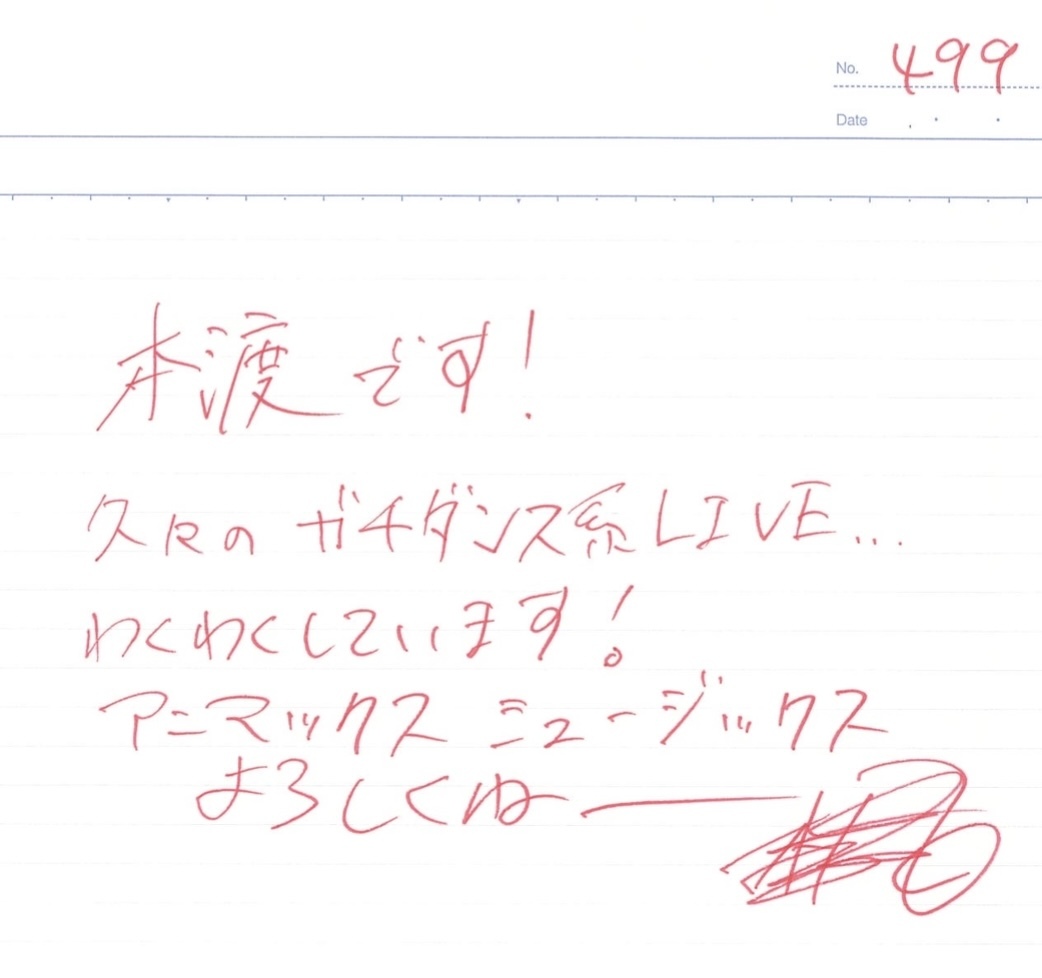 No. 499
Date . . .
本渡です!
久々のガチダンス系LIVE...
わくわくしています!
アニマックス ミュージックス
よろしくねー